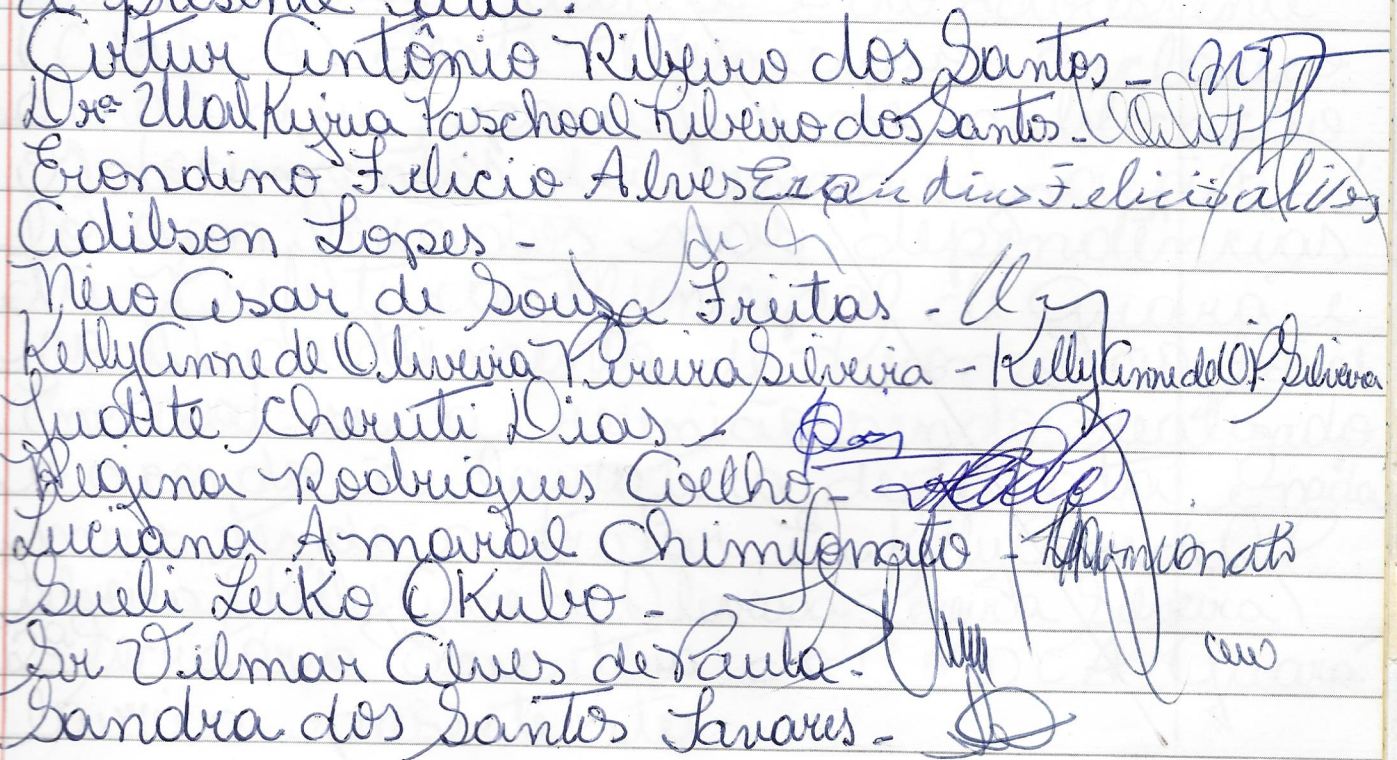 a presente ata.
Artur Antônio Ribeiro dos Santos -
Drª Walkyria Paschoal Ribeiro dos Santos -
Erondino Felicio Alves Erondino Felicio alves
Adilson Lopes -
Neio Cesar de Souza Freitas -
Kelly Anne de Oliveira Pereira Silveira - Kelly Anne de O.P. Silveira
Judite Cheruti Dias -
Regina Rodrigues Coelho -
Luciana Amaral Chimionato - Chimionato
Sueli Leiko Okubo -
Sr Vilmar Alves de Paula.
Sandra dos Santos Tavares -